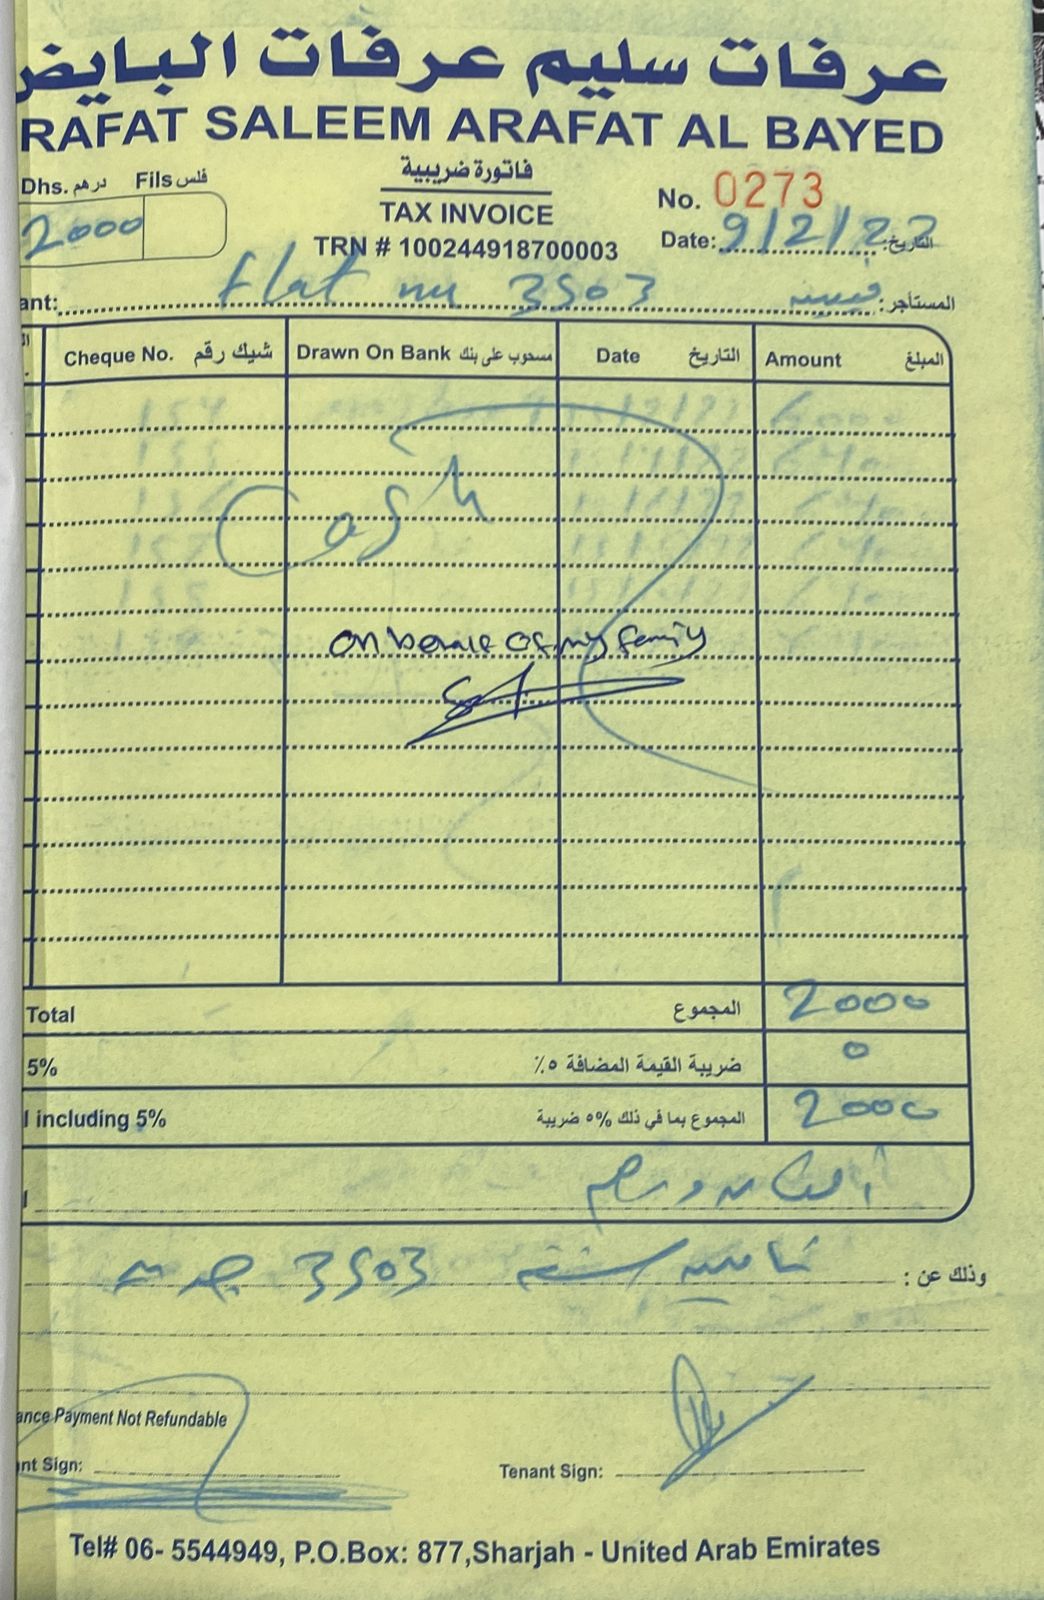 عرفات سليم عرفات البايض
RAFAT SALEEM ARAFAT AL BAYED
Dhs. درهم Fils فلس
2000
فاتورة ضريبية
TAX INVOICE
TRN # 100244918700003
No. 0273
Date: 9/2/22 التاريخ:
ant: Flat nu 3503 المستأجر:
Cheque No. شيك رقم Drawn On Bank مسحوب على بنك Date التاريخ Amount المبلغ
Cash
on behalf of my family
Total المجموع 2000
5% ضريبة القيمة المضافة ٥٪ 0
l including 5% المجموع بما في ذلك ٥% ضريبة 2000
ألفان درهم
وذلك عن : تامين شقة 3503
ance Payment Not Refundable
nt Sign:
Tenant Sign:
Tel# 06- 5544949, P.O.Box: 877,Sharjah - United Arab Emirates